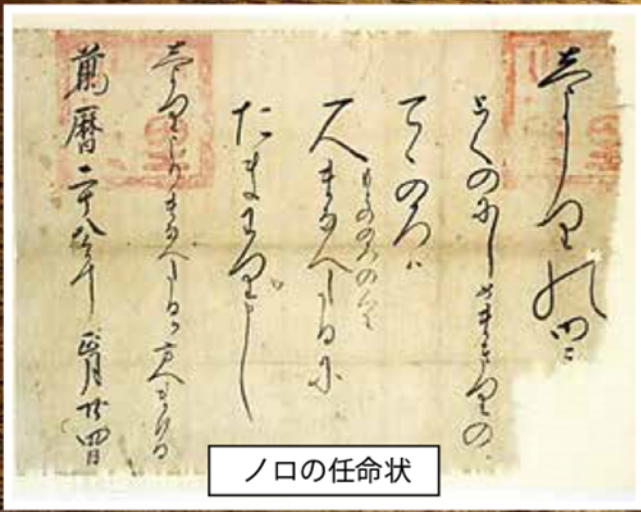 志よりの御ミ
とくのにしめまきりの
てゝのろハ
もとののろのくわ
一人まなへたるに
たまわり申し
志よりよりまなへたるか方へまいる
萬暦二十八年正月廿四日
ノロの任命状